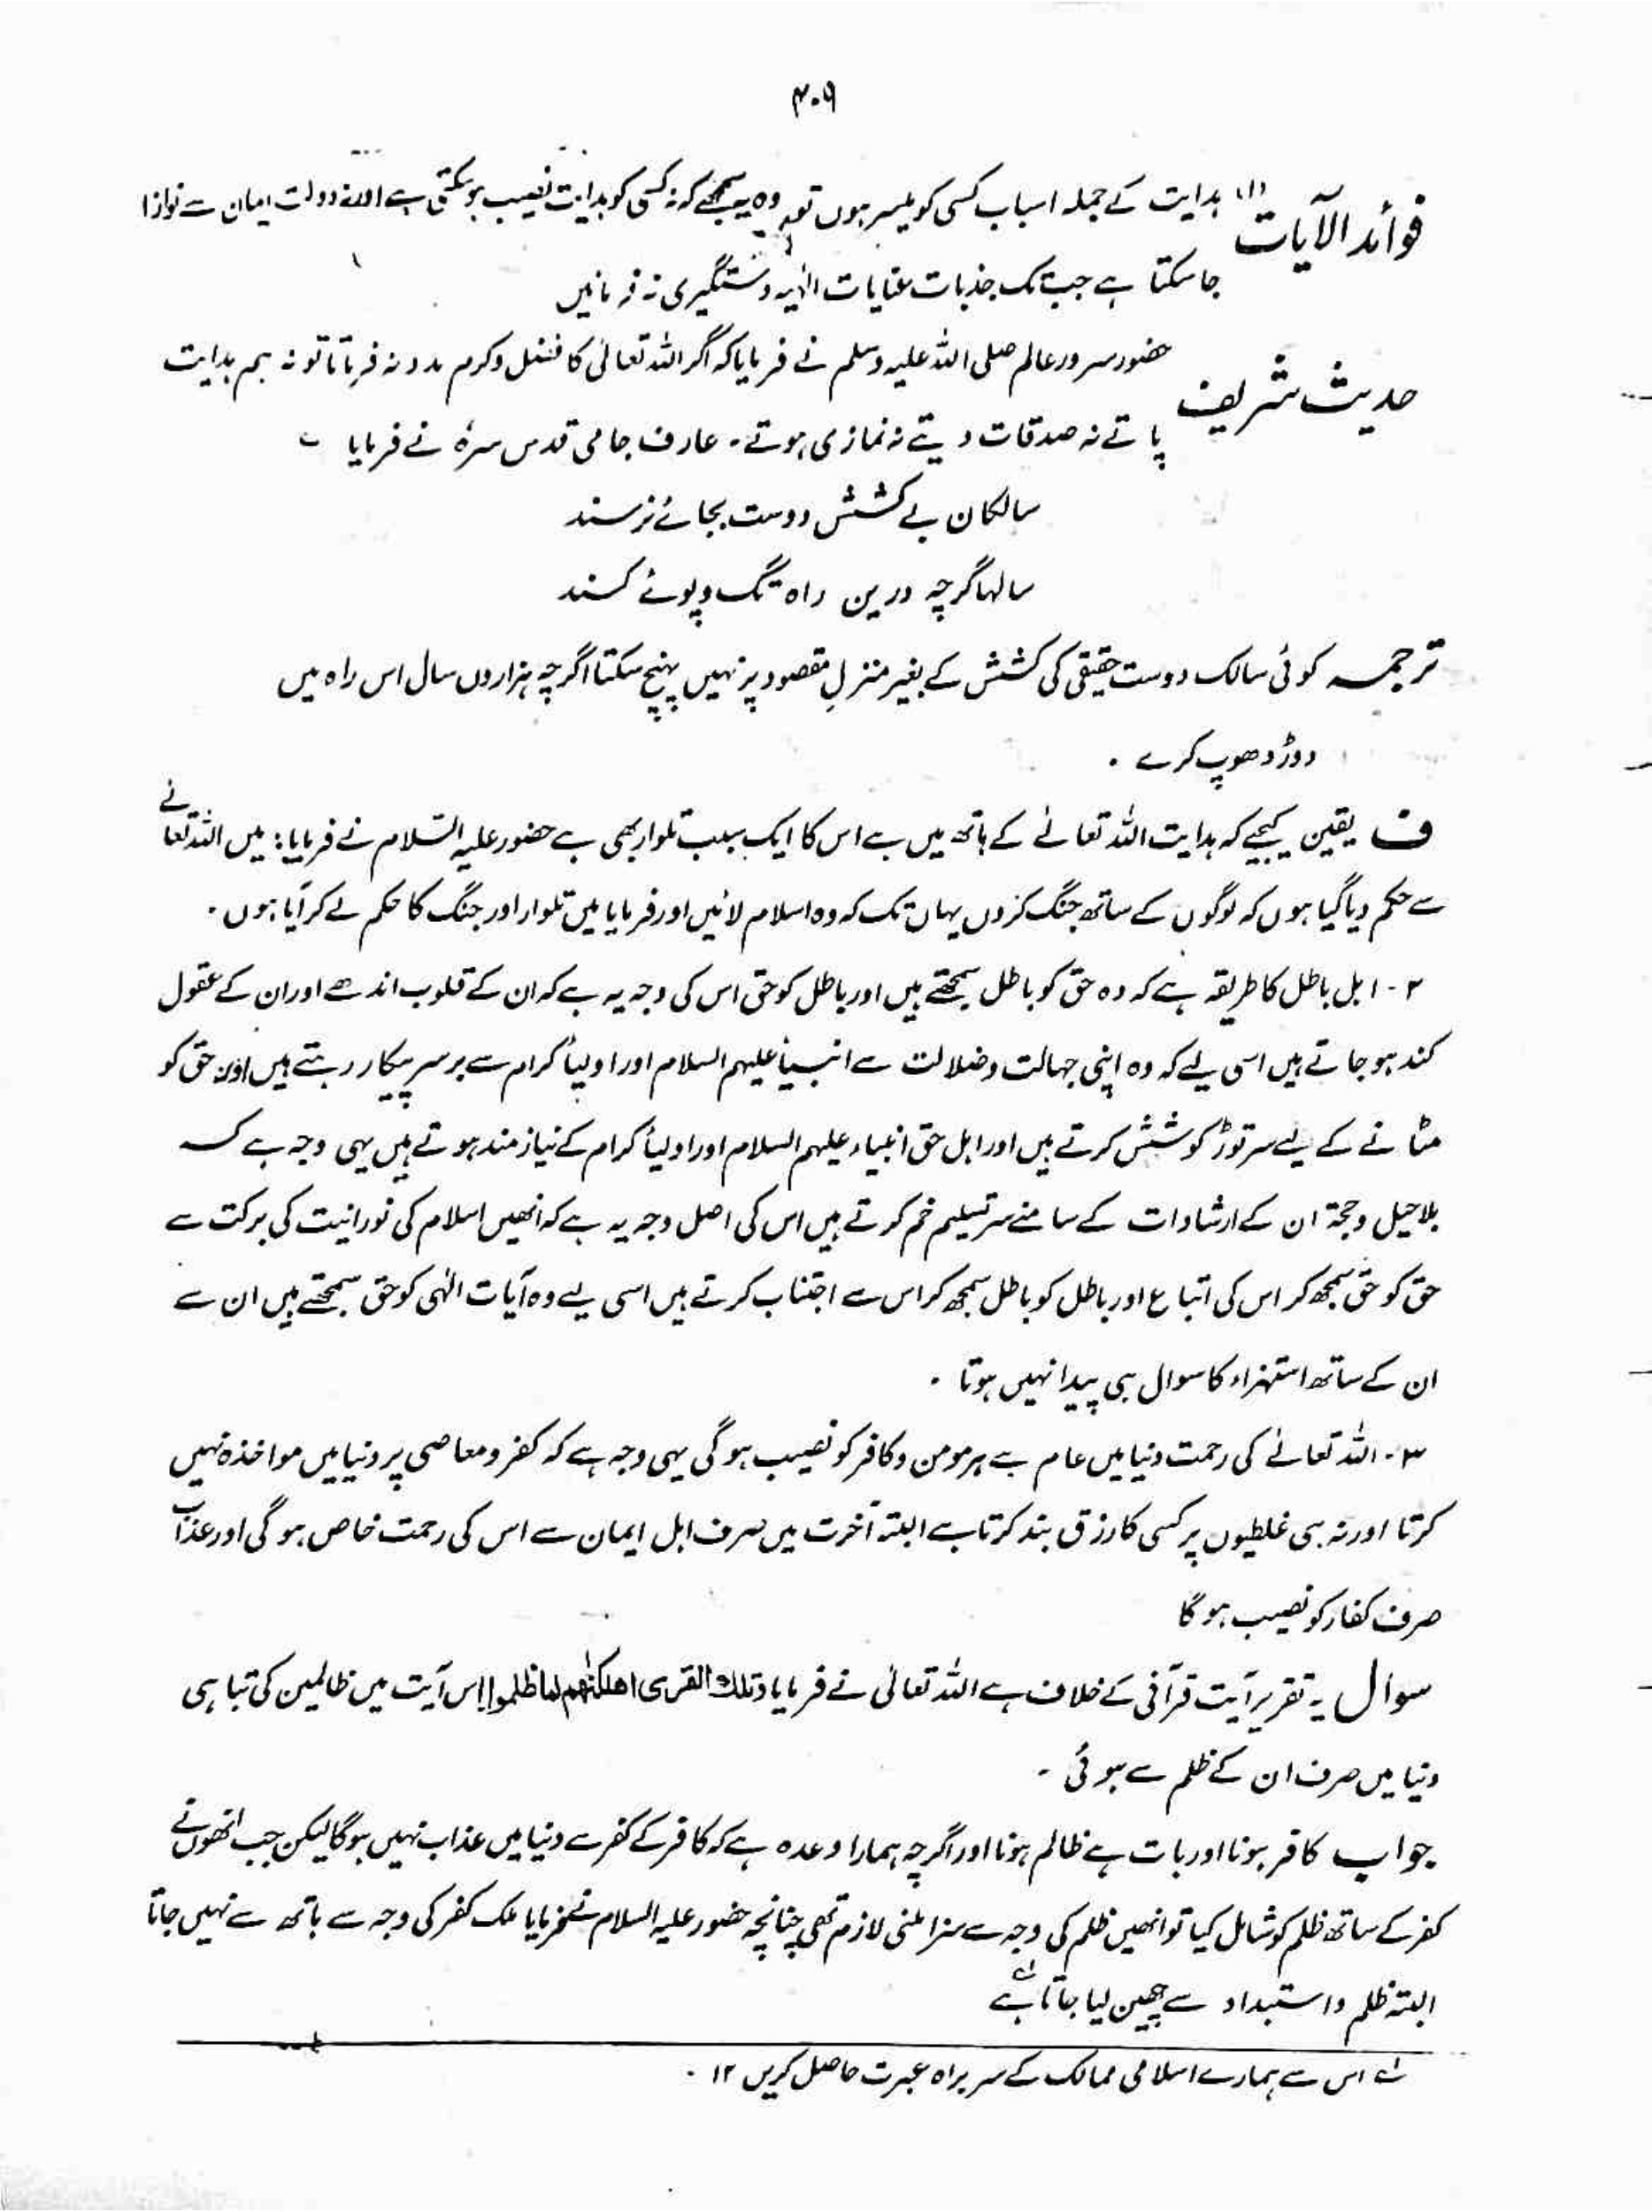 ۳۰۹
فوائد الآیات (۱) ہدایت کے جملہ اسباب کسی کو میسر ہوں تو وہ یہ سمجھے کہ نہ کسی کو ہدایت نصیب ہو سکتی ہے اور نہ دولت ایمان سے نوازا
جا سکتا ہے جب تک جذبات عنایات الٰہیہ دستگیری نہ فرمائیں
حدیث شریف حضور سرور عالم صلی اللہ علیہ وسلم نے فرمایا کہ اگر اللہ تعالیٰ کا فضل و کرم مدد نہ فرماتا تو نہ ہم ہدایت
پاتے نہ صدقات دیتے نہ نمازی ہوتے۔ عارف جامی قدس سرہٗ نے فرمایا ؎
سالکان بے کشش دوست بجائے نرسند
سالہا گرچہ درین راہ تگ و پوئے کنند
ترجمہ کوئی سالک دوست حقیقی کی کشش کے بغیر منزلِ مقصود پر نہیں پہنچ سکتا اگرچہ ہزاروں سال اس راہ میں
دوڑ دھوپ کرے ۔
ف یقین کیجیے کہ ہدایت اللہ تعالےٰ کے ہاتھ میں ہے اس کا ایک سبب تلوار بھی ہے حضور علیہ السّلام نے فرمایا: میں اللہ تعالےٰ
سے حکم دیا گیا ہوں کہ لوگوں کے ساتھ جنگ کروں یہاں تک کہ وہ اسلام لائیں اور فرمایا میں تلوار اور جنگ کا حکم لے کر آیا ہوں ۔
۲ ۔ اہل باطل کا طریقہ ہے کہ وہ حق کو باطل سمجھتے ہیں اور باطل کو حق اس کی وجہ یہ ہے کہ ان کے قلوب اندھے اور ان کے عقول
کند ہو جاتے ہیں اسی لیے کہ وہ اپنی جہالت و ضلالت سے انبیأ علیہم السلام اور اولیأ کرام سے برسر پیکار رہتے ہیں اور حق کو
مٹانے کے لیے سر توڑ کوشش کرتے ہیں اور اہل حق انبیاء علیہم السلام اور اولیأ کرام کے نیاز مند ہوتے ہیں یہی وجہ ہے کہ
بلا حیل و حجۃ ان کے ارشادات کے سامنے سر تسلیم خم کرتے ہیں اس کی اصل وجہ یہ ہے کہ انھیں اسلام کی نورانیت کی برکت سے
حق کو حق سمجھ کر اس کی اتباع اور باطل کو باطل سمجھ کر اس سے اجتناب کرتے ہیں اسی لیے وہ آیات الٰہی کو حق سمجھتے ہیں ان سے
ان کے ساتھ استہزاء کا سوال ہی پیدا نہیں ہوتا ۔
۳ ۔ اللہ تعالےٰ کی رحمت دنیا میں عام ہے ہر مومن و کافر کو نصیب ہو گی یہی وجہ ہے کہ کفر و معاصی پر دنیا میں مواخذہ نہیں
کرتا اور نہ ہی غلطیوں پر کسی کا رزق بند کرتا ہے البتہ آخرت میں صرف اہل ایمان سے اس کی رحمت خاص ہو گی اور عذاب
صرف کفار کو نصیب ہو گا
سوال یہ تقریر آیت قرآنی کے خلاف ہے اللہ تعالیٰ نے فرمایا وتلك القرى اهلكنٰهم لما ظلموا اس آیت میں ظالمین کی تباہی
دنیا میں صرف ان کے ظلم سے ہوئی ۔
جواب کافر ہونا اور بات ہے ظالم ہونا اور اگرچہ ہمارا وعدہ ہے کہ کافر کے کفر سے دنیا میں عذاب نہیں ہو گا لیکن جب انھوں نے
کفر کے ساتھ ظلم کو شامل کیا تو انھیں ظلم کی وجہ سے سزا ملنی لازم تھی چنانچہ حضور علیہ السلام نے فرمایا ملک کفر کی وجہ سے ہاتھ سے نہیں جاتا
البتہ ظلم و استبداد سے چھین لیا جاتا ہے لے
لے اس سے ہمارے اسلامی ممالک کے سربراہ عبرت حاصل کریں ۱۲ ۔